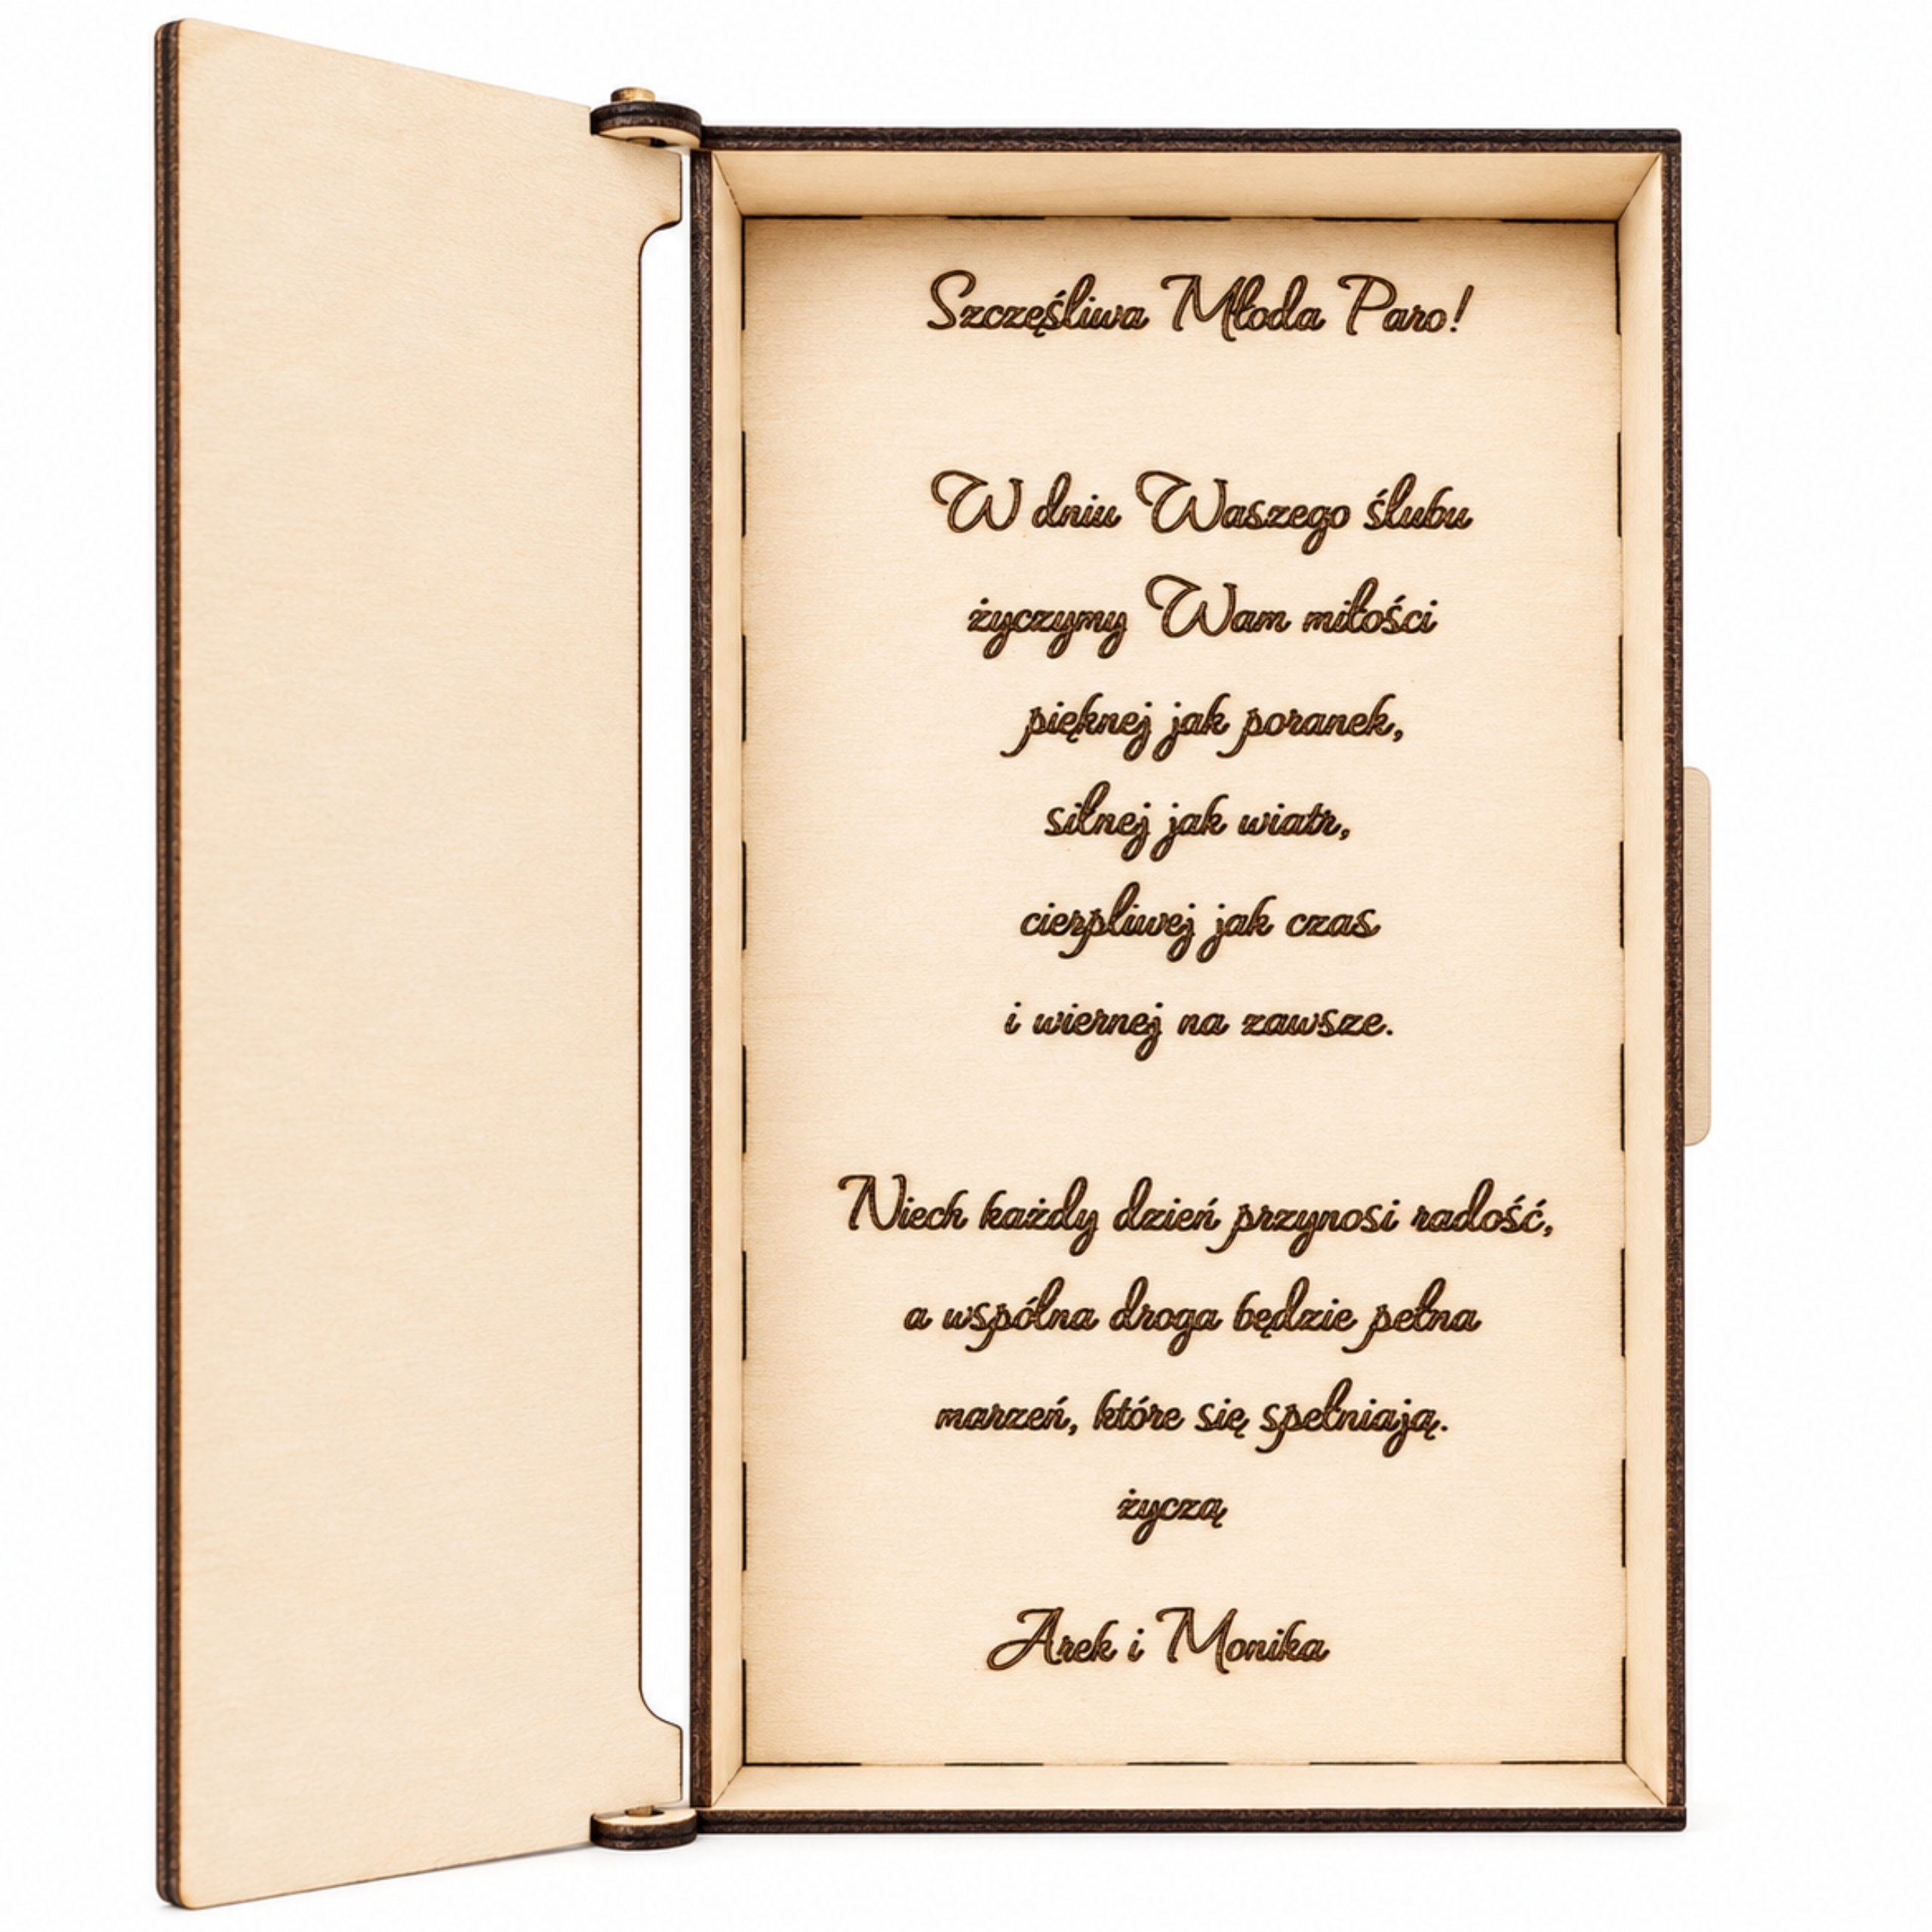 Szczęśliwa Młoda Paro!
W dniu Waszego ślubu
życzymy Wam miłości
pięknej jak poranek,
silnej jak wiatr,
cierpliwej jak czas
i wiernej na zawsze.
Niech każdy dzień przynosi radość,
a wspólna droga będzie pełna
marzeń, które się spełniają.
życzą
Arek i Monika